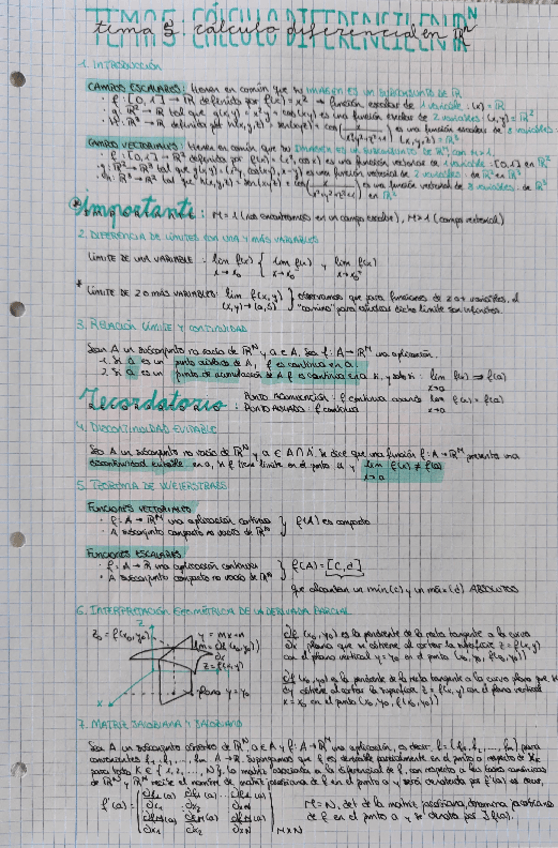 TEMA 5. CÁLCULO DIFERENCIAL EN ℝᴺ
tema 5. cálculo diferencial en ℝᴺ
1. INTRODUCCIÓN
CAMPOS ESCALARES: tienen en común que su IMAGEN ES UN SUBCONJUNTO DE ℝ
· f: [0,1] → ℝ definida por f(x) = x² → función escalar de 1 variable
· g: ℝ² → ℝ tal que es una función escalar de 2 variables
es una función escalar de 3 variables
CAMPOS VECTORIALES: tienen en común que su IMAGEN ES UN SUBCONJUNTO DE ℝᴹ, con M>1.
· f: [0,1] → ℝ² definida por f(x) = (x², cos x) es una función vectorial de 1 variable: [0,1] en ℝ²
es una función vectorial de 2 variables: de ℝ² en ℝ³
es una función vectorial de 3 variables. de ℝ³ en ℝ²
importante: M=1 (nos encontramos en un campo escalar), M>1 (campo vectorial)
2. DIFERENCIA DE LÍMITES CON UNA Y MÁS VARIABLES
LÍMITE DE UNA VARIABLE: lim f(x) { lim f(x) y lim f(x)
x→x₀ x→x₀⁻ x→x₀⁺
* LÍMITE DE 2 O MÁS VARIABLES: lim f(x,y) } observamos que para funciones de 2 o + variables, el
(x,y)→(a,b) "camino" para estudiar dicho límite son infinitos.
3. RELACIÓN LÍMITE Y CONTINUIDAD
Sean A un subconjunto no vacío de ℝᴺ y a ∈ A. Sea f: A → ℝᴹ una aplicación.
1. Si a es un punto aislado de A, f es continua en a.
2. Si a es un punto de acumulación de A f es continua en a si, y solo si: lim f(x) = f(a)
x→a
Recordatorio: PUNTO ACUMULACIÓN: f continua cuando lim f(x) = f(a)
x→a
PUNTO AISLADO: f continua
4. DISCONTINUIDAD EVITABLE
Sea A un subconjunto no vacío de ℝᴺ y a ∈ A∩A'. Se dice que una función f: A→ℝᴹ presenta una
discontinuidad evitable en a, si f tiene límite en el punto a y lim f(x) ≠ f(a)
x→a
5. TEOREMA DE WEIERSTRASS
FUNCIONES VECTORIALES
· f: A → ℝᴹ una aplicación continua } f(A) es compacto
· A subconjunto compacto no vacío de ℝᴺ
FUNCIONES ESCALARES
· f: A → ℝ una aplicación continua } f(A) = [c,d]
· A subconjunto compacto no vacío de ℝᴺ
que alcanzan un mín(c) y un máx(d) ABSOLUTOS
6. INTERPRETACIÓN GEOMÉTRICA DE LA DERIVADA PARCIAL
z
z₀ = f(x₀,y₀)
y = mx+n
z = f(x,y)
plano y = y₀
x
∂f/∂x (x₀,y₀) es la pendiente de la recta tangente a la curva
plana que se obtiene al cortar la superficie z = f(x,y)
con el plano vertical y=y₀ en el punto (x₀,y₀, f(x₀,y₀))
∂f/∂y (x₀,y₀) es la pendiente de la recta tangente a la curva plana que se
obtiene al cortar la superficie z = f(x,y) con el plano vertical
x = x₀ en el punto (x₀,y₀, f(x₀,y₀))
7. MATRIZ JACOBIANA Y JACOBIANO
Sea A un subconjunto abierto de ℝᴺ, a ∈ A y f: A→ℝᴹ una aplicación, es decir, f = (f₁, f₂, ..., fₘ) para
f₁, f₂, ..., fₘ: A→ℝ. Supongamos que f es derivable parcialmente en el punto a respecto de xₖ
para todo k ∈ {1, 2, ..., N}, la matriz asociada a la diferencial de f, con respecto a las bases canónicas
de ℝᴺ y ℝᴹ recibe el nombre de matriz jacobiana de f en el punto a y será denotada por f'(a) es decir,
f'(a) =
M×N
M=N, det de la matriz jacobiana, denomina jacobiano
de f en el punto a y se denota por Jf(a).